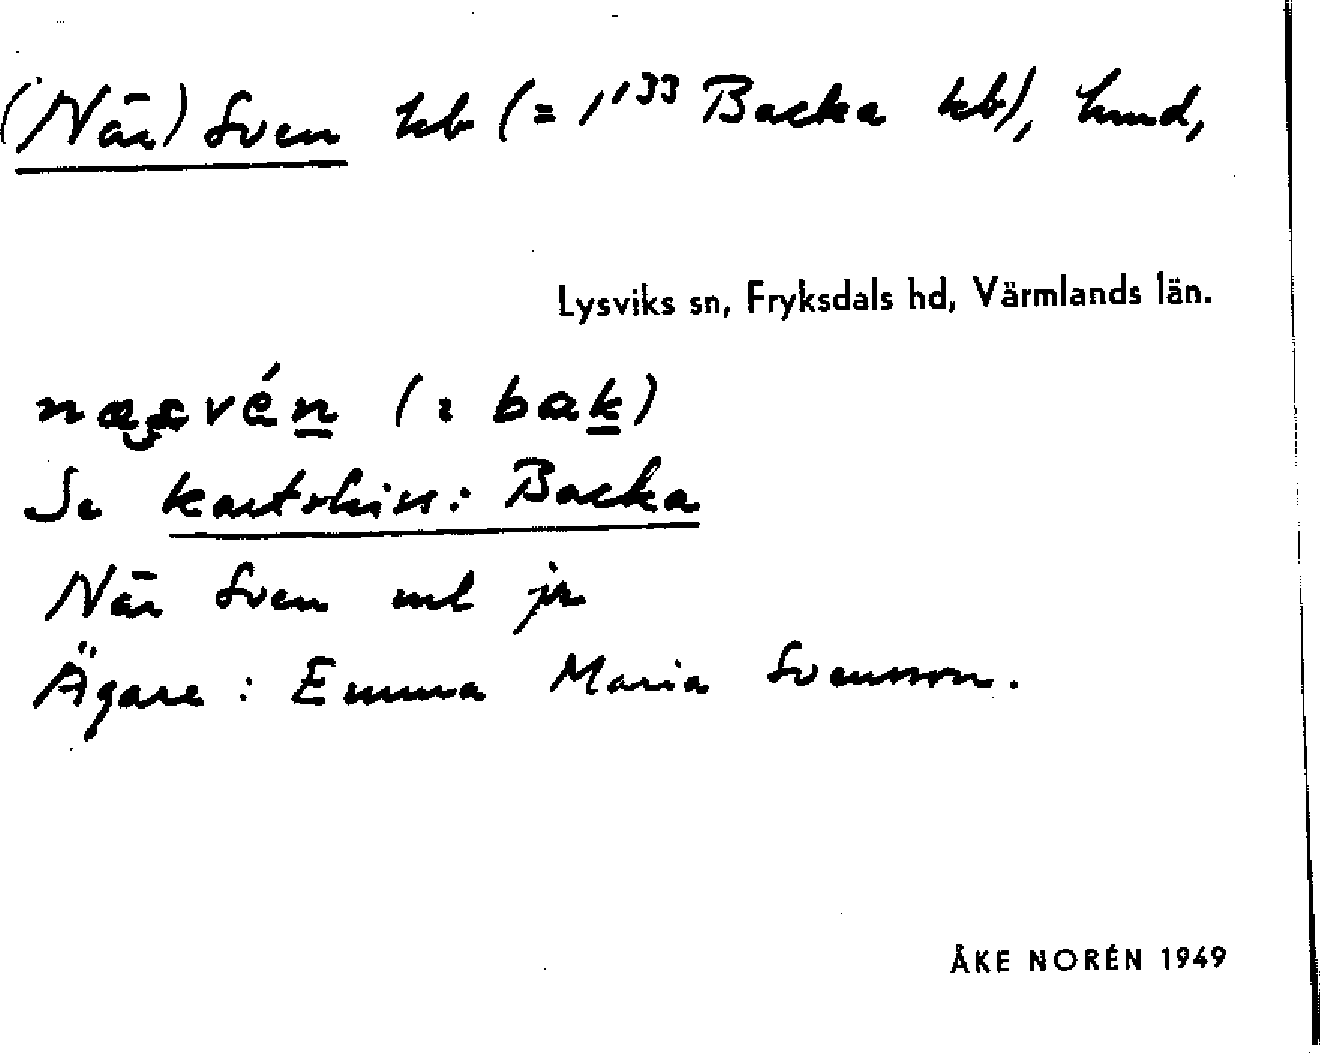 (När) Sven hb (= 1/33 Backa hb), hmd,
Lysviks sn, Fryksdals hd, Värmlands län.
(: bak)
Se kartskiss: Backa
När Sven ml jr
Ägare: Emma Maria Svensson.
ÅKE NORÉN 1949